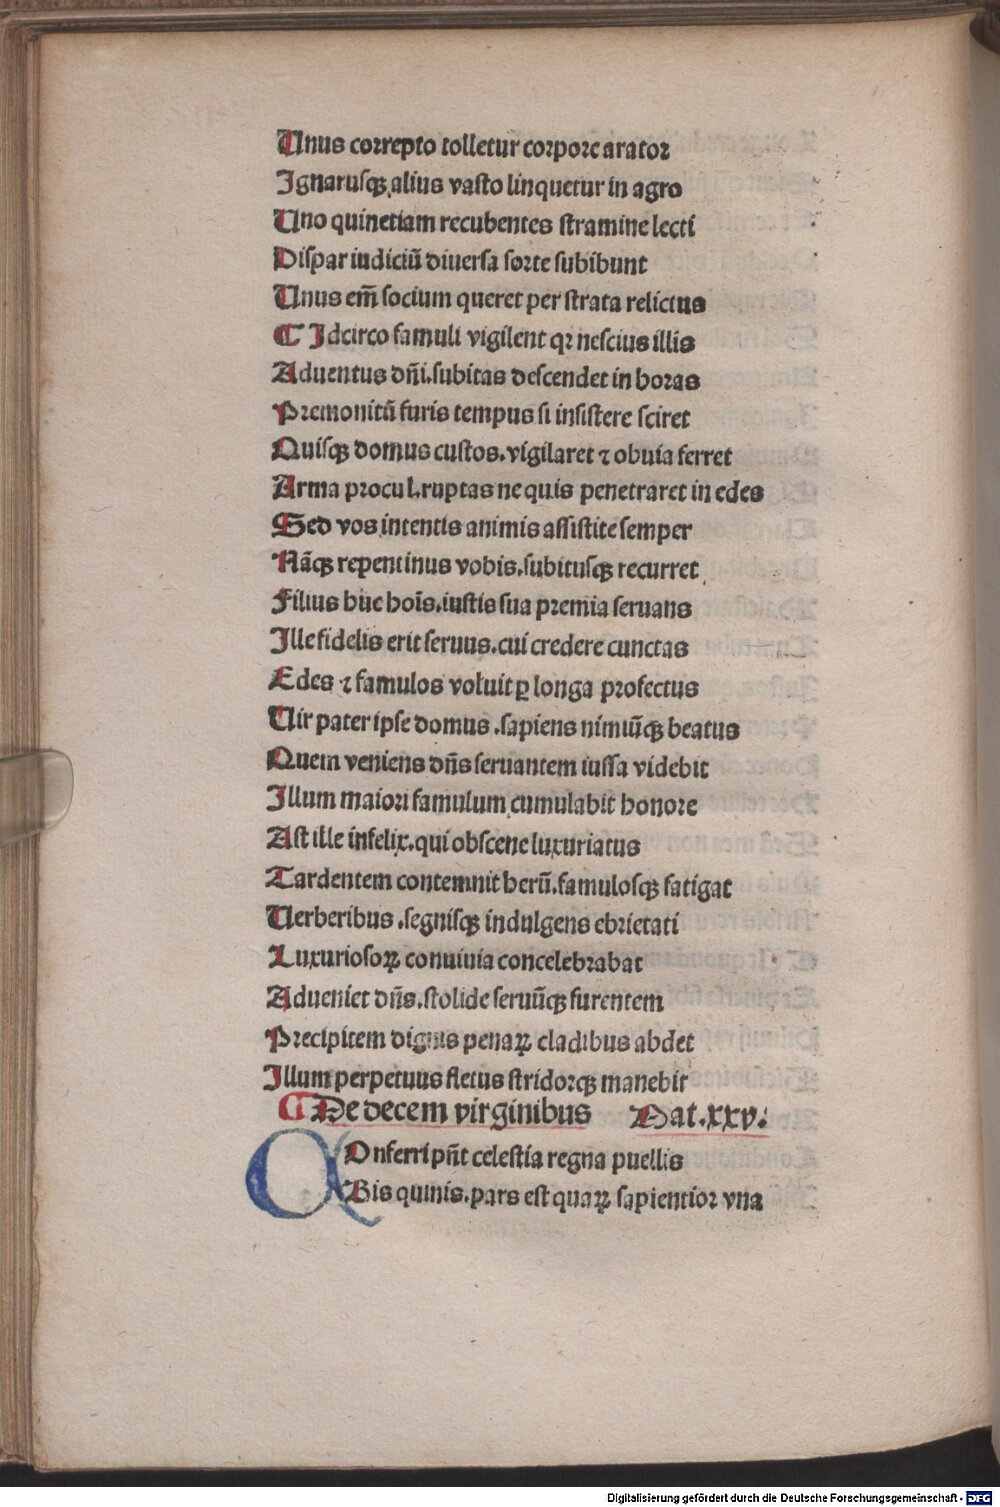 Unus correpto tolletur corpore arator
Ignarusqꝫ alius vasto linquetur in agro
Uno quinetiam recubentes stramine lecti
Dispar iudiciū diuersa sorte subibunt
Unus em̄ socium queret per strata relictus
¶ Idcirco famuli vigilent qꝛ nescius illis
Aduentus dn̄i.subitas descendet in horas
Premonitū furis tempus si insistere sciret
Quisqꝫ domus custos.vigilaret ⁊ obuia ferret
Arma procul.ruptas ne quis penetraret in edes
Sed vos intentis animis assistite semper
Nāqꝫ repentinus vobis.subitusqꝫ recurret
Filius huc hoīs.iustis sua premia seruans
Ille fidelis erit seruus.cui credere cunctas
Edes ⁊ famulos voluit ꝑ longa profectus
Uir pater ipse domus .sapiens nimiūqꝫ beatus
Quem veniens dn̄s seruantem iussa videbit
Illum maiori famulum cumulabit honore
Ast ille infelix.qui obscene luxuriatus
Tardentem contemnit herū.famulosqꝫ fatigat
Uerberibus .segnisqꝫ indulgens ebrietati
Luxuriosoꝝ conuiuia concelebrabat
Adueniet dn̄s.stolide seruūqꝫ furentem
Precipitem dignis penaꝝ cladibus abdet
Illum perpetuus fletus stridorqꝫ manebit
¶ De decem virginibus Mat.xxv.
COnferri pn̄t celestia regna puellis
Bis quinis.pars est quaꝝ sapientior vna
Digitalisierung gefördert durch die Deutsche Forschungsgemeinschaft - DFG